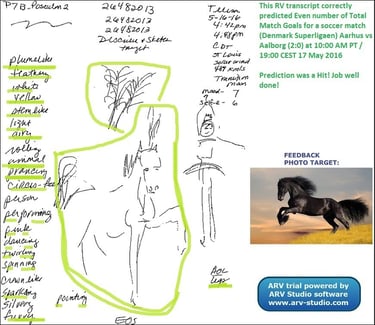 P7B
2G482013
2G482013
2G482013
Describe & Sketch
target
5-16-16
4:42pm
4:48pm
CDT
St Louis
plumelike
feathery
white
yellow
stemlike
light
airy
animal
prancing
person
performing
pink
dancing
twirling
spinning
crownlike
sparkling
silvery
pointing
EOS
This RV transcript correctly
predicted Even number of Total
Match Goals for a soccer match
(Denmark Superligaen) Aarhus vs
Aalborg (2:0) at 10:00 AM PT /
19:00 CEST 17 May 2016
Prediction was a Hit! Job well
done!
FEEDBACK
PHOTO TARGET:
ARV trial powered by
ARV Studio software
www.arv-studio.com